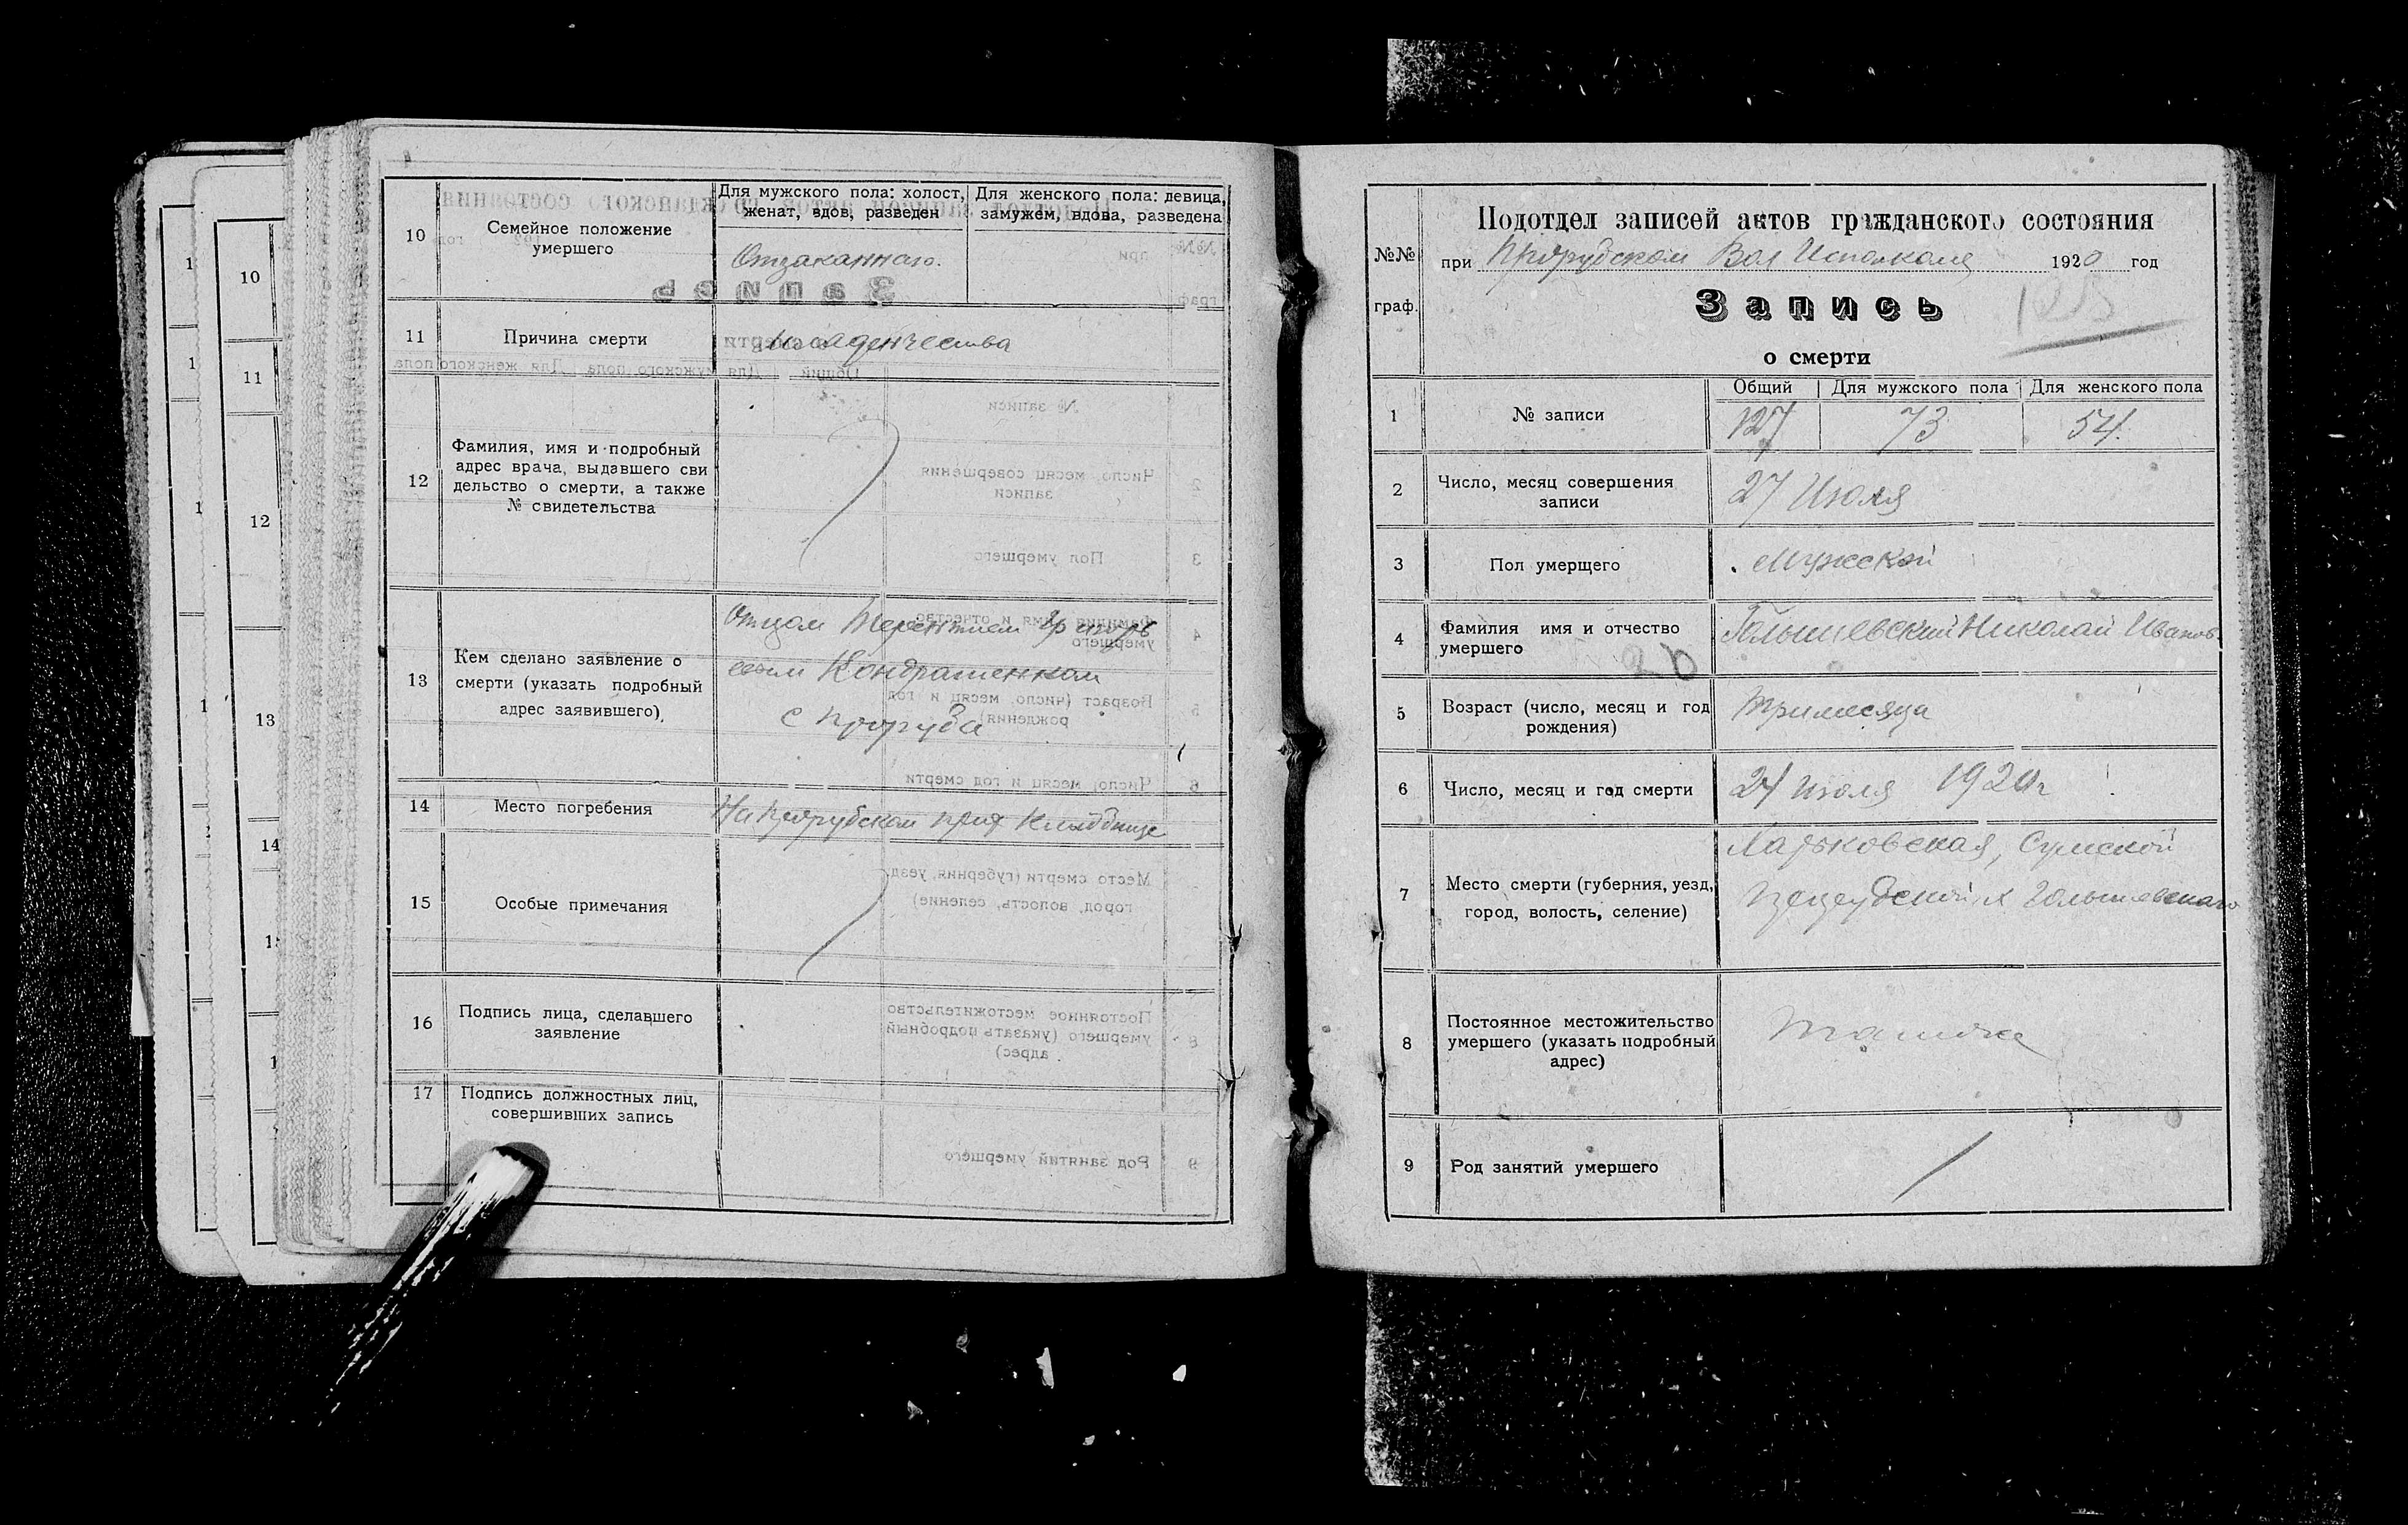 10
Семейное положение
умершего
Для мужского пола: холост,
женат, вдов, разведен
Для женского пола: девица,
замужем, вдова, разведена
11
Причина смерти
младенчества
12
Фамилия, имя и подробный
адрес врача, выдавшего сви
дельство о смерти, а также
№ свидетельства
13
Кем сделано заявление о
смерти (указать подробный
адрес заявившего).
Отцом Терентием Григорь
евым Кондратенком
с Проруба
14
Место погребения
На Прорубском прих Кладбище
15
Особые примечания
16
Подпись лица, сделавшего
заявление
17
Подпись должностных лиц,
совершивших запись
10
11
12
13
14
№№
граф.
Подотдел записей актов гражданского состояния
при Прорубском Вол Исполкоме 1920 год
Запись
о смерти
1
№ записи
Общий
Для мужского пола
Для женского пола
127
73
54
2
Число, месяц совершения
записи
27 Июля
3
Пол умершего
Мужской
4
Фамилия имя и отчество
умершего
Голышевский Николай Иванов
5
Возраст (число, месяц и год
рождения)
Три месяца
6
Число, месяц и год смерти
24 июля 1920 г
7
Место смерти (губерния, уезд,
город, волость, селение)
Харьковская, Сумской
х Голышевского
8
Постоянное местожительство
умершего (указать подробный
адрес)
9
Род занятий умершего